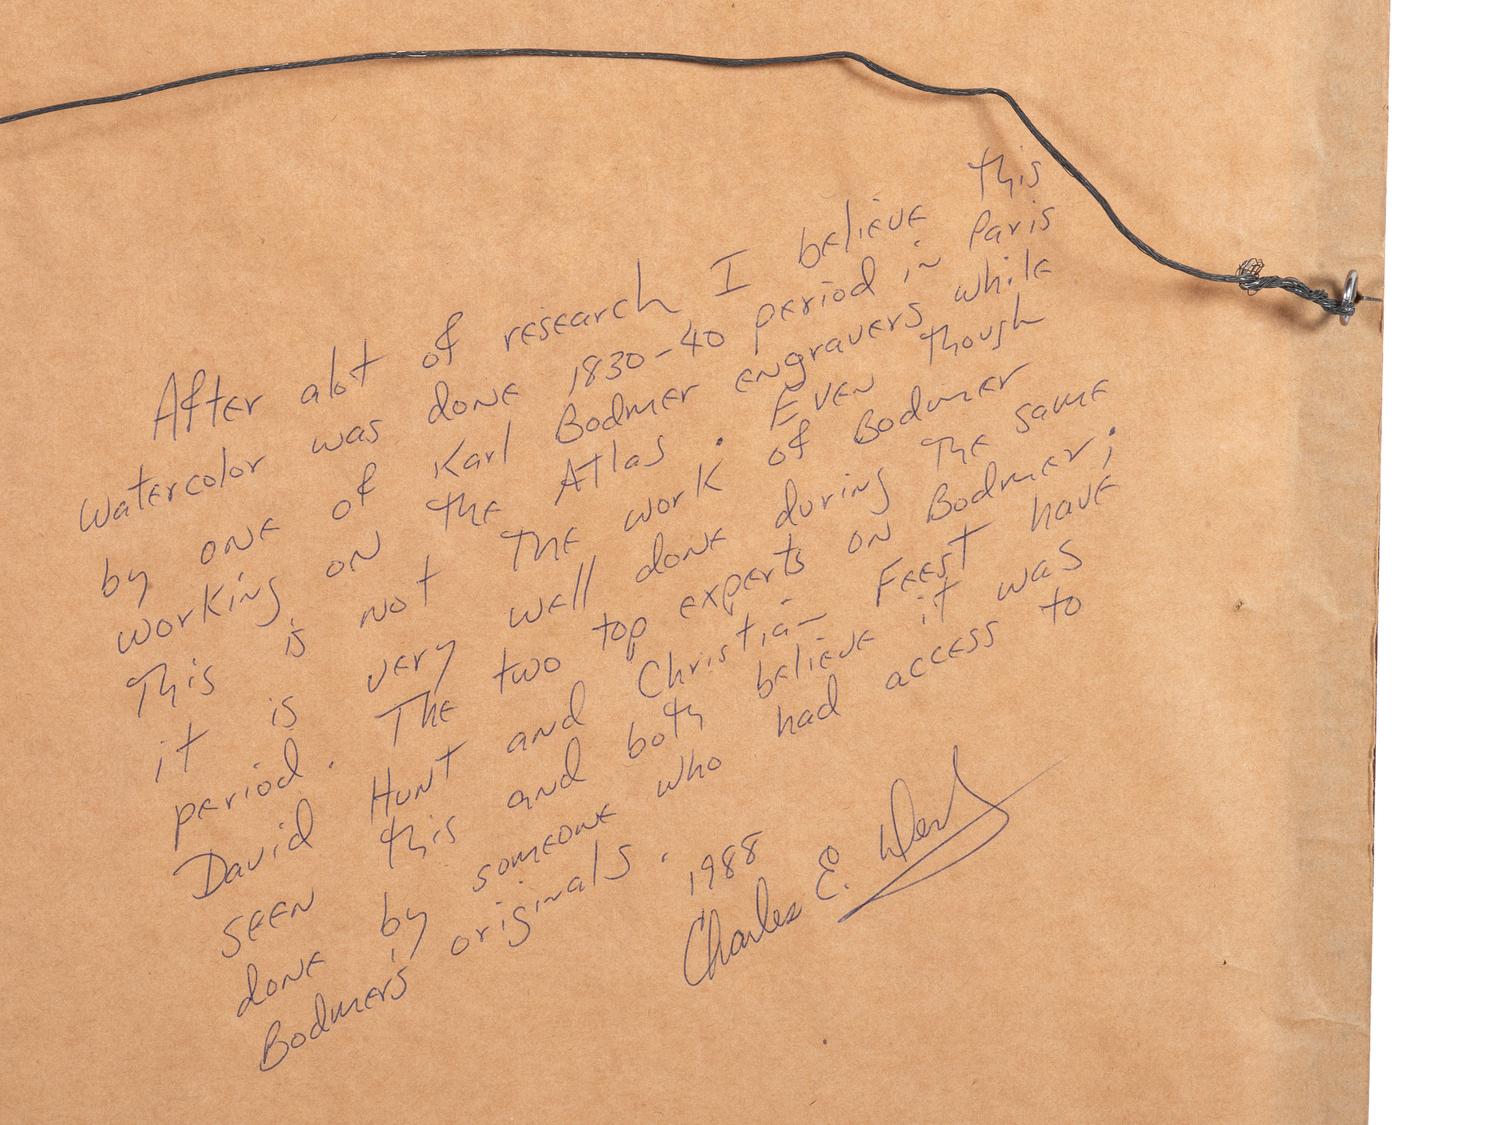 After alot of research I believe this
watercolor was done 1830-40 period in Paris
by one of Karl Bodmer engravers while
working on the Atlas. Even though
This is not The work of Bodmer
it is very well done during The same
period. The two top experts on Bodmer;
David Hunt and Christian Feest have
seen this and both believe it was
done by someone who had access to
Bodmer's originals. 1988
Charles E.